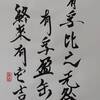 有孚比之无咎
有孚盈缶
終来有它吉